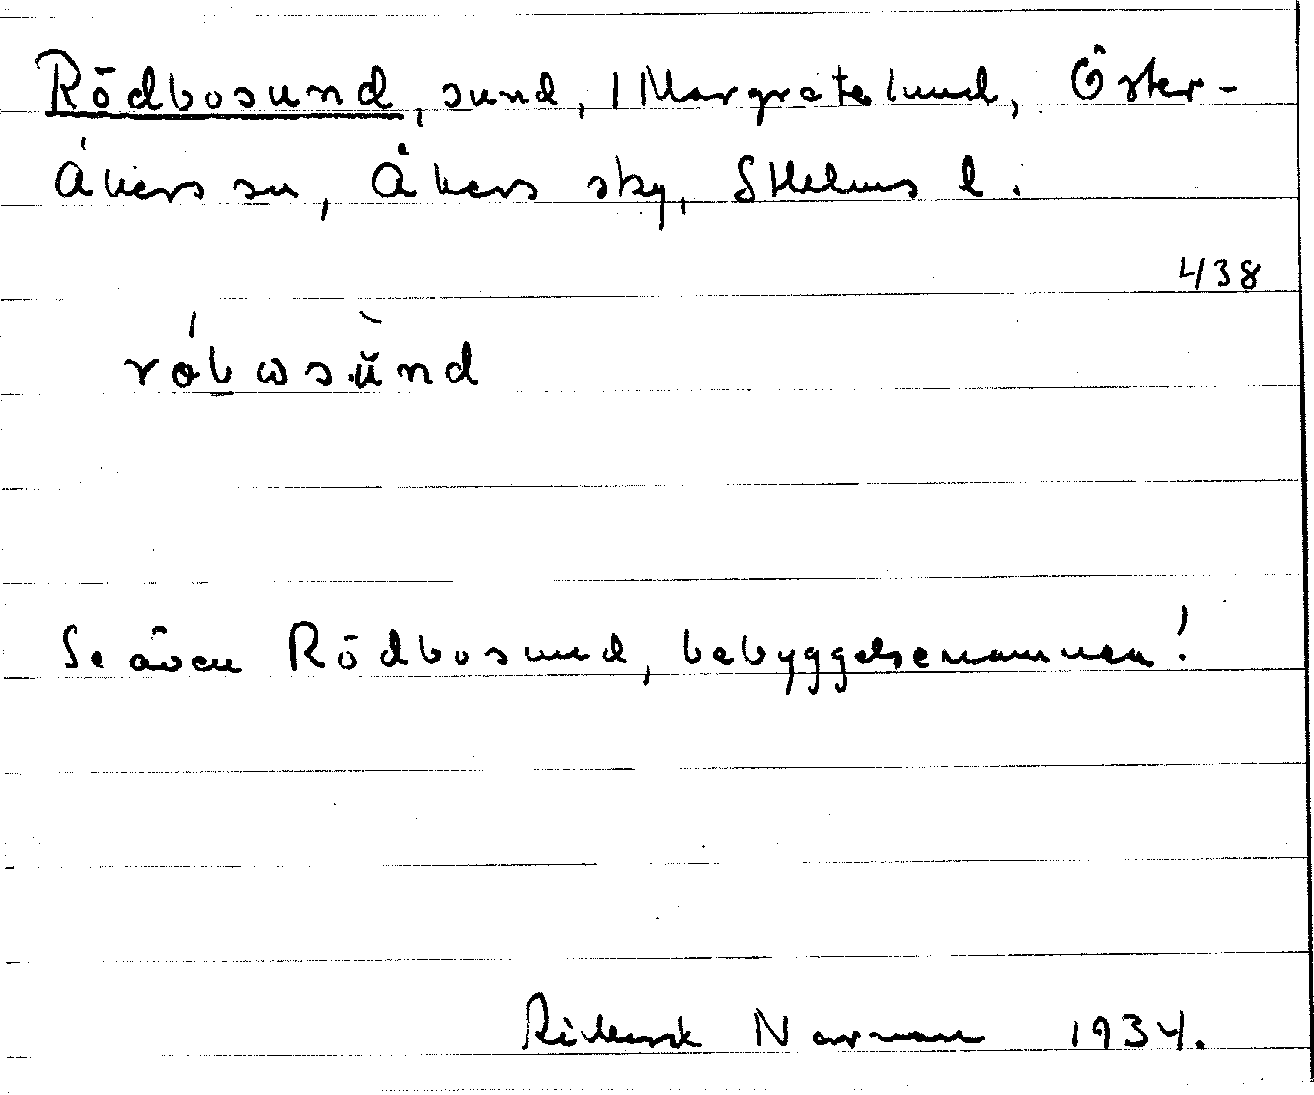 Rödbosund, sund, 1 Margretelund, Öster-
Åkers sn, Åkers sky, Sthlms l.
438
Se även Rödbosund, bebyggelsenamnen!
Rikard Norman 1934.